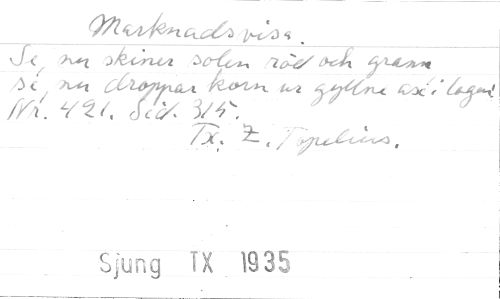 Marknadsvisa.
Se, nu skiner solen röd och grann
se, nu droppar korn ur gyllne ax i lagen
Nr. 421. Sid. 315.
Tx. Z. Topelius.
Sjung TX 1935